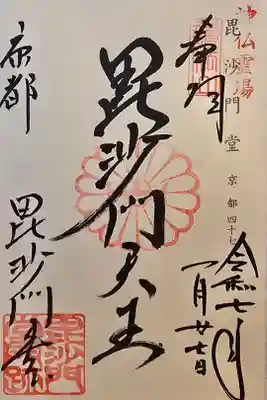 神仏霊場
毘沙門堂 京都四十七
奉拝
令和七年
一月廿七日
毘沙門天王
京都
毘沙門堂